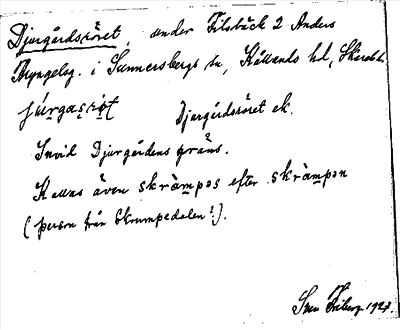 Djurgårdsröret, under Filsbäck 2 Anders
Bryngelsg. i Sunnersbergs sn, Kållands hd, Skarab. l.
jụrgaṣrøt Djurgårdsröret ek.
Invid Djurgårdens gräns.
Kallas även skràmpɷs efter skràmpɷn
(person från Skrumpedalen!).
Sven Friberg 1927.